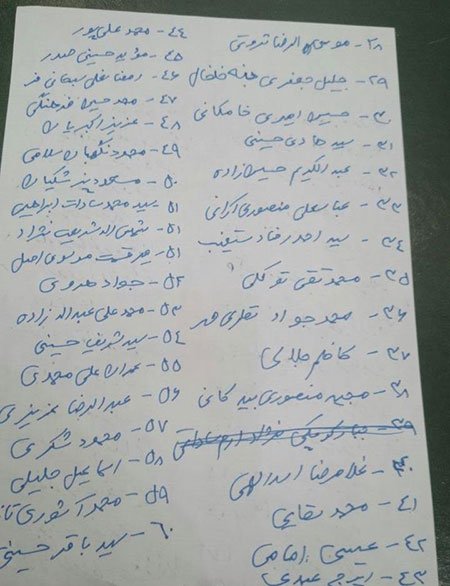 ۲۸- موسی الرضا ثروتی
۲۹- جلیل جعفری بنه خلخال
۳۰- حسین امیری خامکانی
۳۱- سید هادی حسینی
۳۲- عبدالکریم حسین زاده
۳۳- عباسعلی منصوری آرانی
۳۴- سید احمدرضا دستغیب
۳۵- محمدتقی توکلی
۳۶- محمدجواد نظری مهر
۳۷- کاظم جلالی
۳۸- مجید منصوری بیدکانی
۳۹-
۴۰- غلامرضا اسداللهی
۴۱- محمد سقایی
۴۲- عیسی امامی
۴۳- ایرج عبدی
۴۴- محمد علی پور
۴۵- مؤید حسینی صدر
۴۶- رمضانعلی سبحانی فر
۴۷- محمدحسین فرهنگی
۴۸- عزیز اکبریان
۴۹- محمود نگهبان سلامی
۵۰- مسعود پزشکیان
۵۱- سید محمد سادات ابراهیمی
۵۱- شمس اله شریعت نژاد
۵۱- میرقسمت موسوی اصل
۵۲- جواد هروی
۵۳- محمد علی عبداله زاده
۵۴- سید شریف حسینی
۵۵- عمران علی محمدی
۵۶- عبدالرضا عزیزی
۵۷- محمود شکری
۵۸- اسماعیل جلیلی
۵۹- محمد آشوری تا
۶۰- سید باقر حسینی